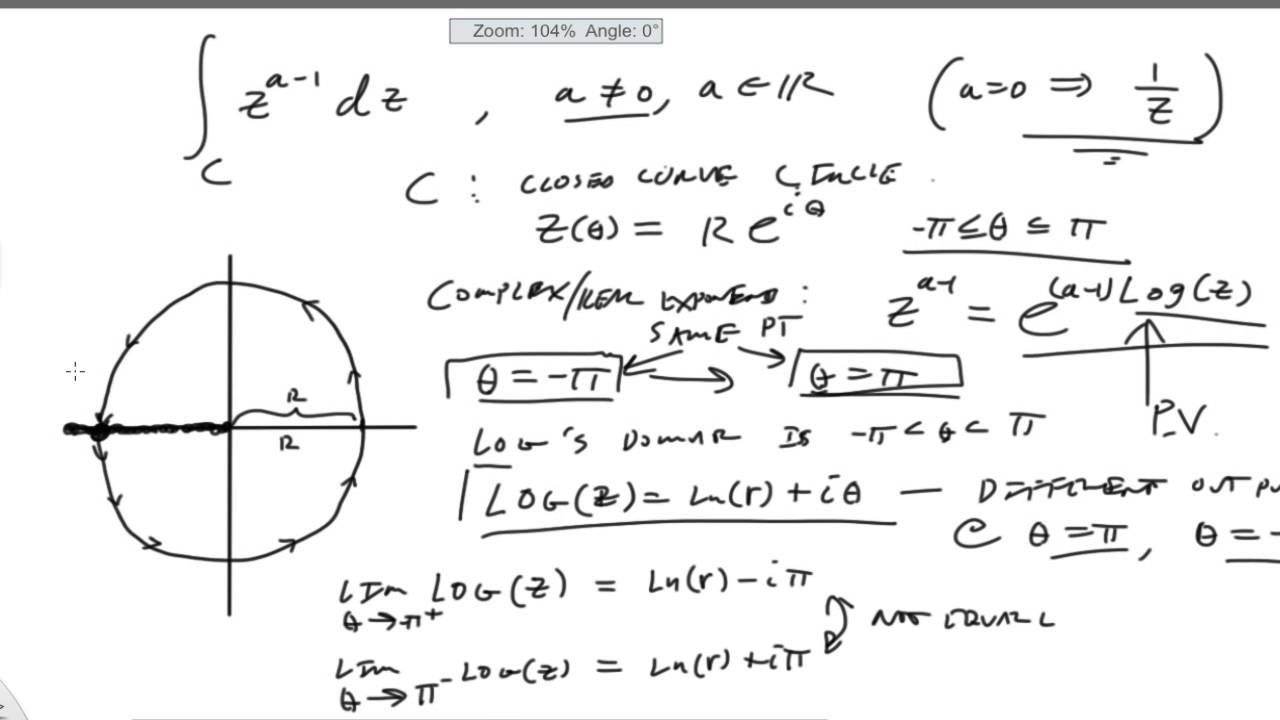 Zoom: 104% Angle: 0°
∫_C z^{a-1} dz , a ≠ 0, a ∈ ℝ (a=0 ⟹ 1/z)
C : CLOSED CURVE CIRCLE
Z(θ) = R e^{iθ} -π ≤ θ ≤ π
COMPLEX/REAL EXPONENT : z^{a-1} = e^{(a-1)Log(z)}
SAME PT
θ = -π θ = π
P.V.
R
R
LOG'S DOMAIN IS -π < θ < π
LOG(z) = Ln(r) + iθ — DIFFERENT OUTPU
@ θ = π, θ = -
LIM θ→π⁺ LOG(z) = Ln(r) - iπ
NOT EQUAL
LIM θ→π⁻ LOG(z) = Ln(r) + iπ